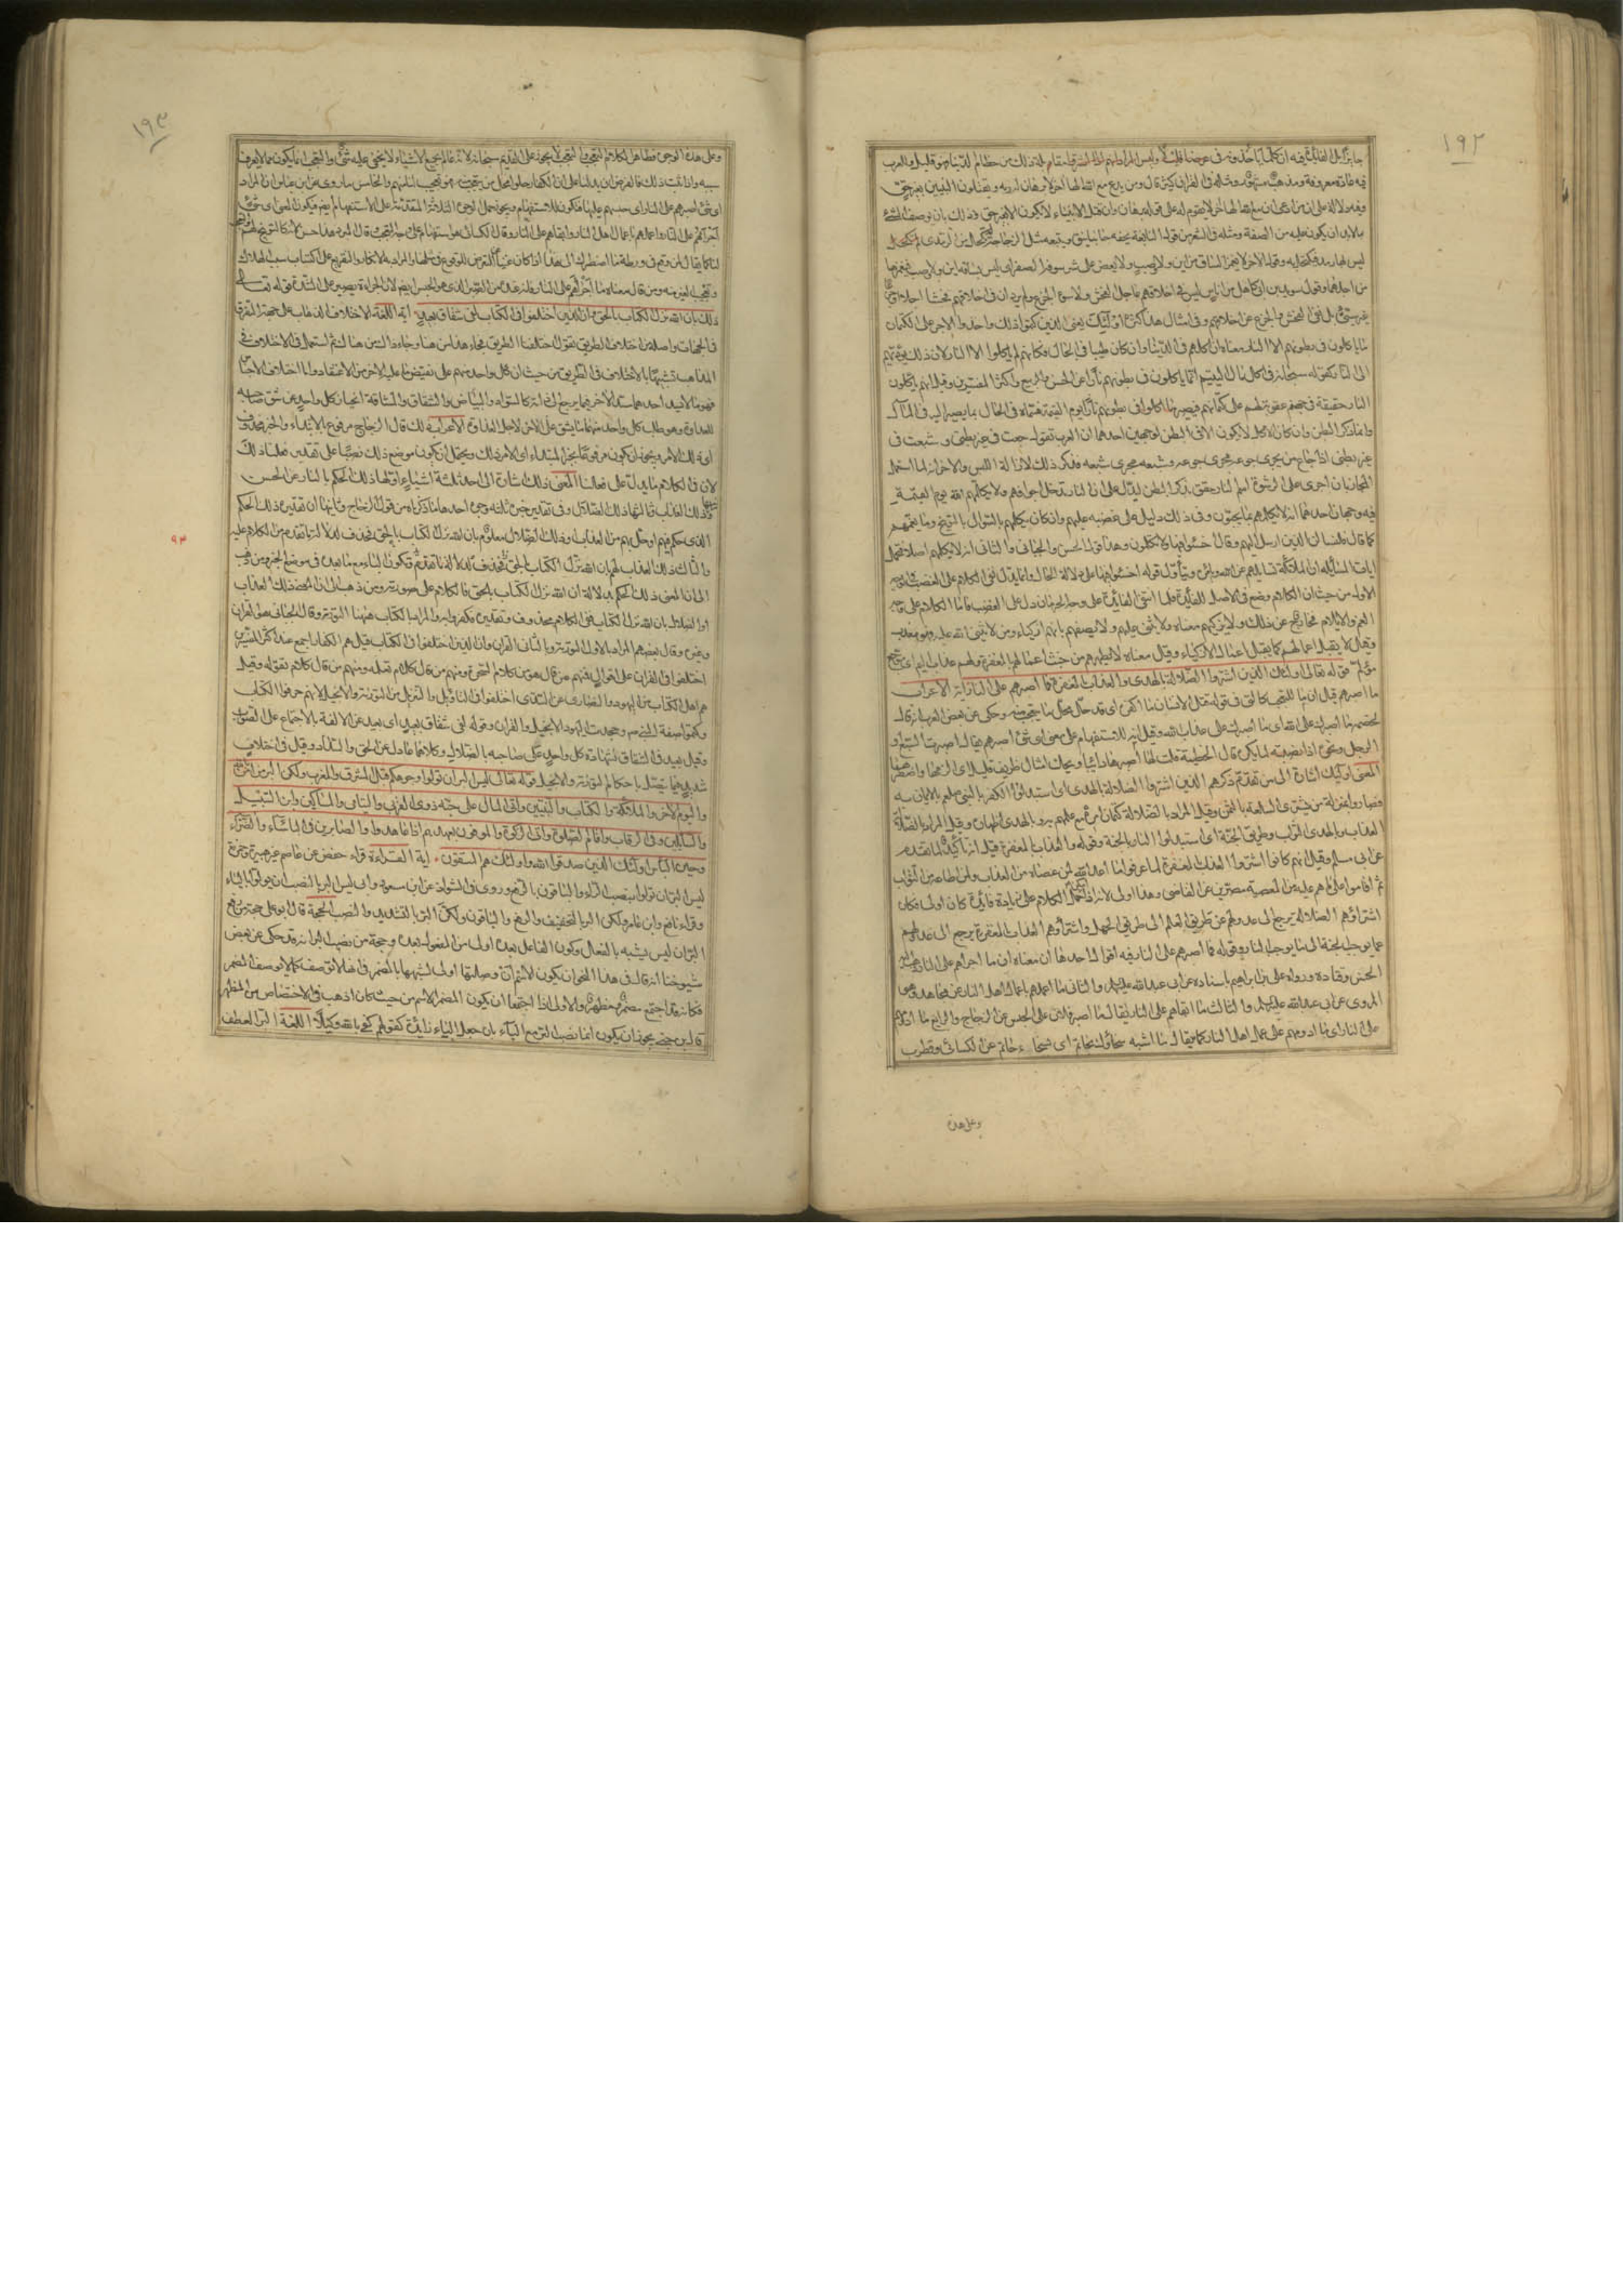 ١٩٢
فيه عادة معروفة ومذهب مشهور ومثله في القران كثير قال ومن يدع مع الله الها اخر لا برهان له به ويقتلون النبيين بغير حق
وفيه دلالة على ان من ادعى ان مع الله الها اخر لا يقوم له على قوله برهان وان قتل الانبياء لا يكون الا بغير حق وذلك بان وصف الشيء
بما لا بد ان يكون عليه من الصفة ومثله في الشعر قول النابغة يحفه جانبا نيق ويتبعه مثل الزجاجة لم تكحل من الرمد اي
ليس بها رمد فتكحل له وقول الاخر لا يغمز الساق من اين ولا وصب ولا يعض على شرسوفه الصفر اي ليس بساقه اين ولا وصب فيغمزها
من اجلهما وقول سويد بن ابي كاهل من اناس ليس في اخلاقهم عاجل الفحش ولا سوء الجزع ولم يرد ان في اخلاقهم فحشا اجلا
بل نفى الفحش والجزع عن اخلاقهم وفي امثال هذا كثرة اولئك يعني الذين كتموا ذلك واخذوا الاجر على الكتمان
ما ياكلون في بطونهم الا النار معناه ان اكلهم في الدنيا وان كان طيبا في الحال فكانهم لم ياكلوا الا النار لان ذلك يؤديهم
الى النار كقوله سبحانه في اكل مال اليتيم انما ياكلون في بطونهم نارا عن الحسن والربيع واكثر المفسرين وقيل انهم ياكلون
النار حقيقة في جهنم عقوبة لهم على كتمانهم فيصير ما اكلوا في بطونهم نارا يوم القيمة فسماه في الحال بما يصير اليه في المآل
وانما ذكر البطن وان كان الاكل لا يكون الا في البطن لوجهين احدهما ان العرب تقول جعت في غير بطني وشبعت في
غير بطني اذا جاع من يجري جوعه مجرى جوعه وشبعه مجرى شبعه فذكر ذلك لازالة اللبس والاخر انه لما استعمل
المجاز بان اجرى على الرشوة اسم النار حقق بذكر البطن ليدل على ان النار تدخل اجوافهم ولا يكلمهم الله يوم القيمة
فيه وجهان احدهما انه لا يكلمهم بما يحبون وفي ذلك دليل على غضبه عليهم وان كان يكلمهم بالسؤال بالتوبيخ وبما يغمهم
كما قال فلنسالن الذين ارسل اليهم وقال اخسؤا فيها ولا تكلمون وهذا قول الحسن والجبائي والثاني انه لا يكلمهم اصلا فتحمل
ايات المسائلة ان الملائكة تسايلهم عن الله وبامره ويتأول قوله اخسؤا فيها على دلالة الحال وانما يدل نفي الكلام على الغضب في الوجه
الاول من حيث ان الكلام وضع في الاصل للفائدة فلما انتفى الفائدة على وجه الحرمان دل على الغضب فاما الكلام على وجه
الغم والايلام فخارج عن ذلك ولا يزكيهم معناه ولا يثني عليهم ولا يصفهم بانهم ازكياء ومن لا يثني الله عليه فهو معذب
وقيل لا يقبل اعمالهم كما يقبل اعمال الازكياء وقيل معناه لا يطهرهم من خبث اعمالهم بالمغفرة ولهم عذاب اليم اي موجع
مؤلم قوله تعالى اولئك الذين اشتروا الضلالة بالهدى والعذاب بالمغفرة فما اصبرهم على النار اية الاعراب
ما اصبرهم قيل ان ما للتعجب كالتي في قوله قتل الانسان ما اكفره اي قد حل محل ما يتعجب منه وحكي عن بعض العرب انه قال
لخصمه ما اصبرك على الله اي ما اصبرك على عذاب الله وقيل انه للاستفهام على معنى اي شيء اصبرهم يقال اصبرت السبع او
الرجل ونحوه اذا نصبته لما يكره قال الحطيئة قلت لها اصبرها دائبا ويحك امثال طريف قليل اي الزمها واضطرها
المعنى اولئك اشارة الى من تقدم ذكرهم الذين اشتروا الضلالة بالهدى اي استبدلوا الكفر بالنبي صلعم بالايمان به
فصاروا بمنزلة من يشتري السلعة بالثمن وقيل المراد بالضلالة كتمان امره مع علمهم به وبالهدى اظهاره وقيل المراد بالضلالة
العذاب وبالهدى الثواب وطريق الجنة اي استبدلوا النار بالجنة وقوله والعذاب بالمغفرة قيل انه تأكيد لما تقدم
عن ابي مسلم وقيل انهم كانوا اشتروا العذاب بالمغفرة لما عرفوا ما اعد الله لمن عصاه من العذاب ولمن اطاعه من الثواب
ثم اقاموا على ما هم عليه من المعصية مصرين عن القاضي وهذا اولى لانه اذا امكن حمل الكلام على زيادة فائدة كان اولى فكان
اشتراؤهم الضلالة يرجع الى عدولهم عن طريق العلم الى طريق الجهل واشتراؤهم العذاب بالمغفرة يرجع الى عدولهم
عما يوجب الجنة الى ما يوجب النار وقوله فما اصبرهم على النار فيه اقوال احدها ان معناه ما اجراهم على النار
الحسن وقتادة ورواه علي بن ابراهيم باسناده عن ابي عبد الله عليه السلم والثاني ما اعملهم باعمال اهل النار عن مجاهد وهو
المروي عن ابي عبد الله عليه السلم والثالث ما ابقاهم على النار كما يقال ما اصبر فلانا على الحبس عن الزجاج والرابع ما ادومهم
على النار اي ما ادومهم على عمل اهل النار كما يقال ما اشبه سخاؤك بحاتم اي بسخاء حاتم عن الكسائي وقطرب
وعلى هذه
١٩٣
وعلى هذه الوجوه فظاهر الكلام التعجب والتعجب لا يجوز على القديم سبحانه لانه عالم بجميع الاشياء لا يخفى عليه شيء والتعجب انما يكون مما لا يعرف
سببه واذا ثبت ذلك فالغرض ان يدلنا على ان الكفار حلوا محل من يتعجب منه فهو تعجيب لنا منهم والخامس ما روي عن ابن عباس ان المراد
اي شيء اصبرهم على النار اي حبسهم عليها فتكون للاستفهام ويجوز حمل الوجوه الثلاثة المتقدمة على الاستفهام ايضا فيكون المعنى اي شيء
اجراهم على النار واعملهم باعمال اهل النار وابقاهم على النار وقال الكسائي هو استفهام على وجه التعجب قال المبرد هذا حسن لانه كالتوبيخ لهم
لنا كما يقال لمن وقع في ورطة ما اضطرك الى هذا اذا كان غنيا عن التعرض للوقوع في مثلها والمراد به الانكار والتقريع على اكتساب سبب الهلاك
وتعجيب لغيره منه ومن قال معناه ما اجراهم على النار فانه عنده من الصبر الذي هو الحبس ايضا لان بالجراة يصير على الشدة قوله تعالى
ذلك بان الله نزل الكتاب بالحق وان الذين اختلفوا في الكتاب لفي شقاق بعيد اية اللغة الاختلاف الذهاب على جهة التفرق
في الجهات واصله من اختلاف الطريق تقول اختلفنا الطريق فجاء هذا من هنا وجاء ذاك من هناك ثم استعمل في الاختلاف في
المذاهب تشبيها بالاختلاف في الطريق من حيث ان كل واحد منهم على نقيض ما عليه الاخر من الاعتقاد واما اختلاف الاجناس
فهو ما لا يسد احدهما مسد الاخر فيما يرجع الى ذاته كالسواد والبياض والشقاق والمشاقة انحياز كل واحد عن شق صاحبه
للعداوة وهو طلب كل واحد منهما ما يشق على الاخر لاجل العداوة الاعراب ذلك قال الزجاج مرفوع بالابتداء والخبر محذوف
اي ذلك الامر ويجوز ان يكون مرفوعا بخبر الابتداء اي الامر ذلك ويحتمل ان يكون موضع ذلك نصبا على تقدير فعلنا ذلك
لان في الكلام ما يدل على فعلنا المعنى ذلك اشارة الى احد ثلثة اشياء اولها ذلك الحكم بالنار عن الحسن
وثانيها ذلك العذاب وثالثها ذلك الضلال وفي تقدير خبر ذلك ثلثة وجوه احدها ما ذكرناه من قول الزجاج وثانيها ان تقديره ذلك الحكم
الذي حكم فيهم او حل بهم من العذاب او ذلك الضلال معلوم بان الله نزل الكتاب بالحق فحذف لدلالة ما تقدم من الكلام عليه
٩٣
والثالث ذلك العذاب لهم بان الله نزل الكتاب بالحق فحذف لدلالة ما تقدم فتكون الباء مع ما بعده في موضع الخبر ومن ذهب
الى ان المعنى ذلك الحكم بدلالة ان الله نزل الكتاب بالحق فالكلام على صورته ومن ذهب الى ان المعنى ذلك العذاب
او الضلال بان الله نزل الكتاب ففي الكلام محذوف وتقديره فكفروا به والمراد بالكتاب ههنا التورية وقال الجبائي هو القران
وغيره وقال بعضهم المراد بالاول التورية وبالثاني القران وان الذين اختلفوا في الكتاب قيل هم الكفار اجمع عند اكثر المفسرين
اختلفوا في القران على اقوال فمنهم من قال هو من كلام السحرة ومنهم من قال كلام تعلمه ومنهم من قال كلام تقوله وقيل
هم اهل الكتاب من اليهود والنصارى عن السدي اختلفوا في التأويل والتنزيل من التورية والانجيل لانهم حرفوا الكتاب
وكتموا صفة النبي صم وجحدت اليهود الانجيل والقران وقوله لفي شقاق بعيد اي بعيد عن الالفة بالاجتماع على الصواب
وقيل بعيد في الشقاق لشهادة كل واحد على صاحبه بالضلال وكلاهما عادل عن الحق والسداد وقيل في اختلاف
شديد فيما يتصل باحكام التورية والانجيل قوله تعالى ليس البر ان تولوا وجوهكم قبل المشرق والمغرب ولكن البر من امن بالله
واليوم الاخر والملائكة والكتاب والنبيين واتى المال على حبه ذوي القربى واليتامى والمساكين وابن السبيل
والسائلين وفي الرقاب واقام الصلوة واتى الزكوة والموفون بعهدهم اذا عاهدوا والصابرين في الباساء والضراء
وحين الباس اولئك الذين صدقوا الله واولئك هم المتقون اية القراءة قراء حفص عن عاصم غير هبيرة وحمزة
ليس البر ان تولوا بنصب الراء والباقون بالرفع وروي في الشواذ عن ابن مسعود وابي ليس البر بالنصب بان تولوا بالباء
وقراء نافع وابن عامر ولكن البر بالتخفيف والرفع والباقون ولكن البر بالتشديد والنصب الحجة قال ابو علي حجة من رفع
البر ان ليس يشبه بالفعل وكون الفاعل بعده اولى من المفعول بعده وحجة من نصب البر انه قد حكي عن بعض
شيوخنا انه قال في هذا النحو ان يكون الاسم ان وصلتها اولى لشبهها بالمضمر في انها لا توصف كما لا يوصف المضمر
فكانه قد اجتمع مضمر ومظهر والاولى اذا اجتمعا ان يكون المضمر الاسم من حيث كان اذهب في الاختصاص من المظهر
قال ابن جني يجوز ان يكون انما نصب البر مع الباء بان جعل الباء زائدة كقولهم كفى بالله وكيلا اللغة البر العطف